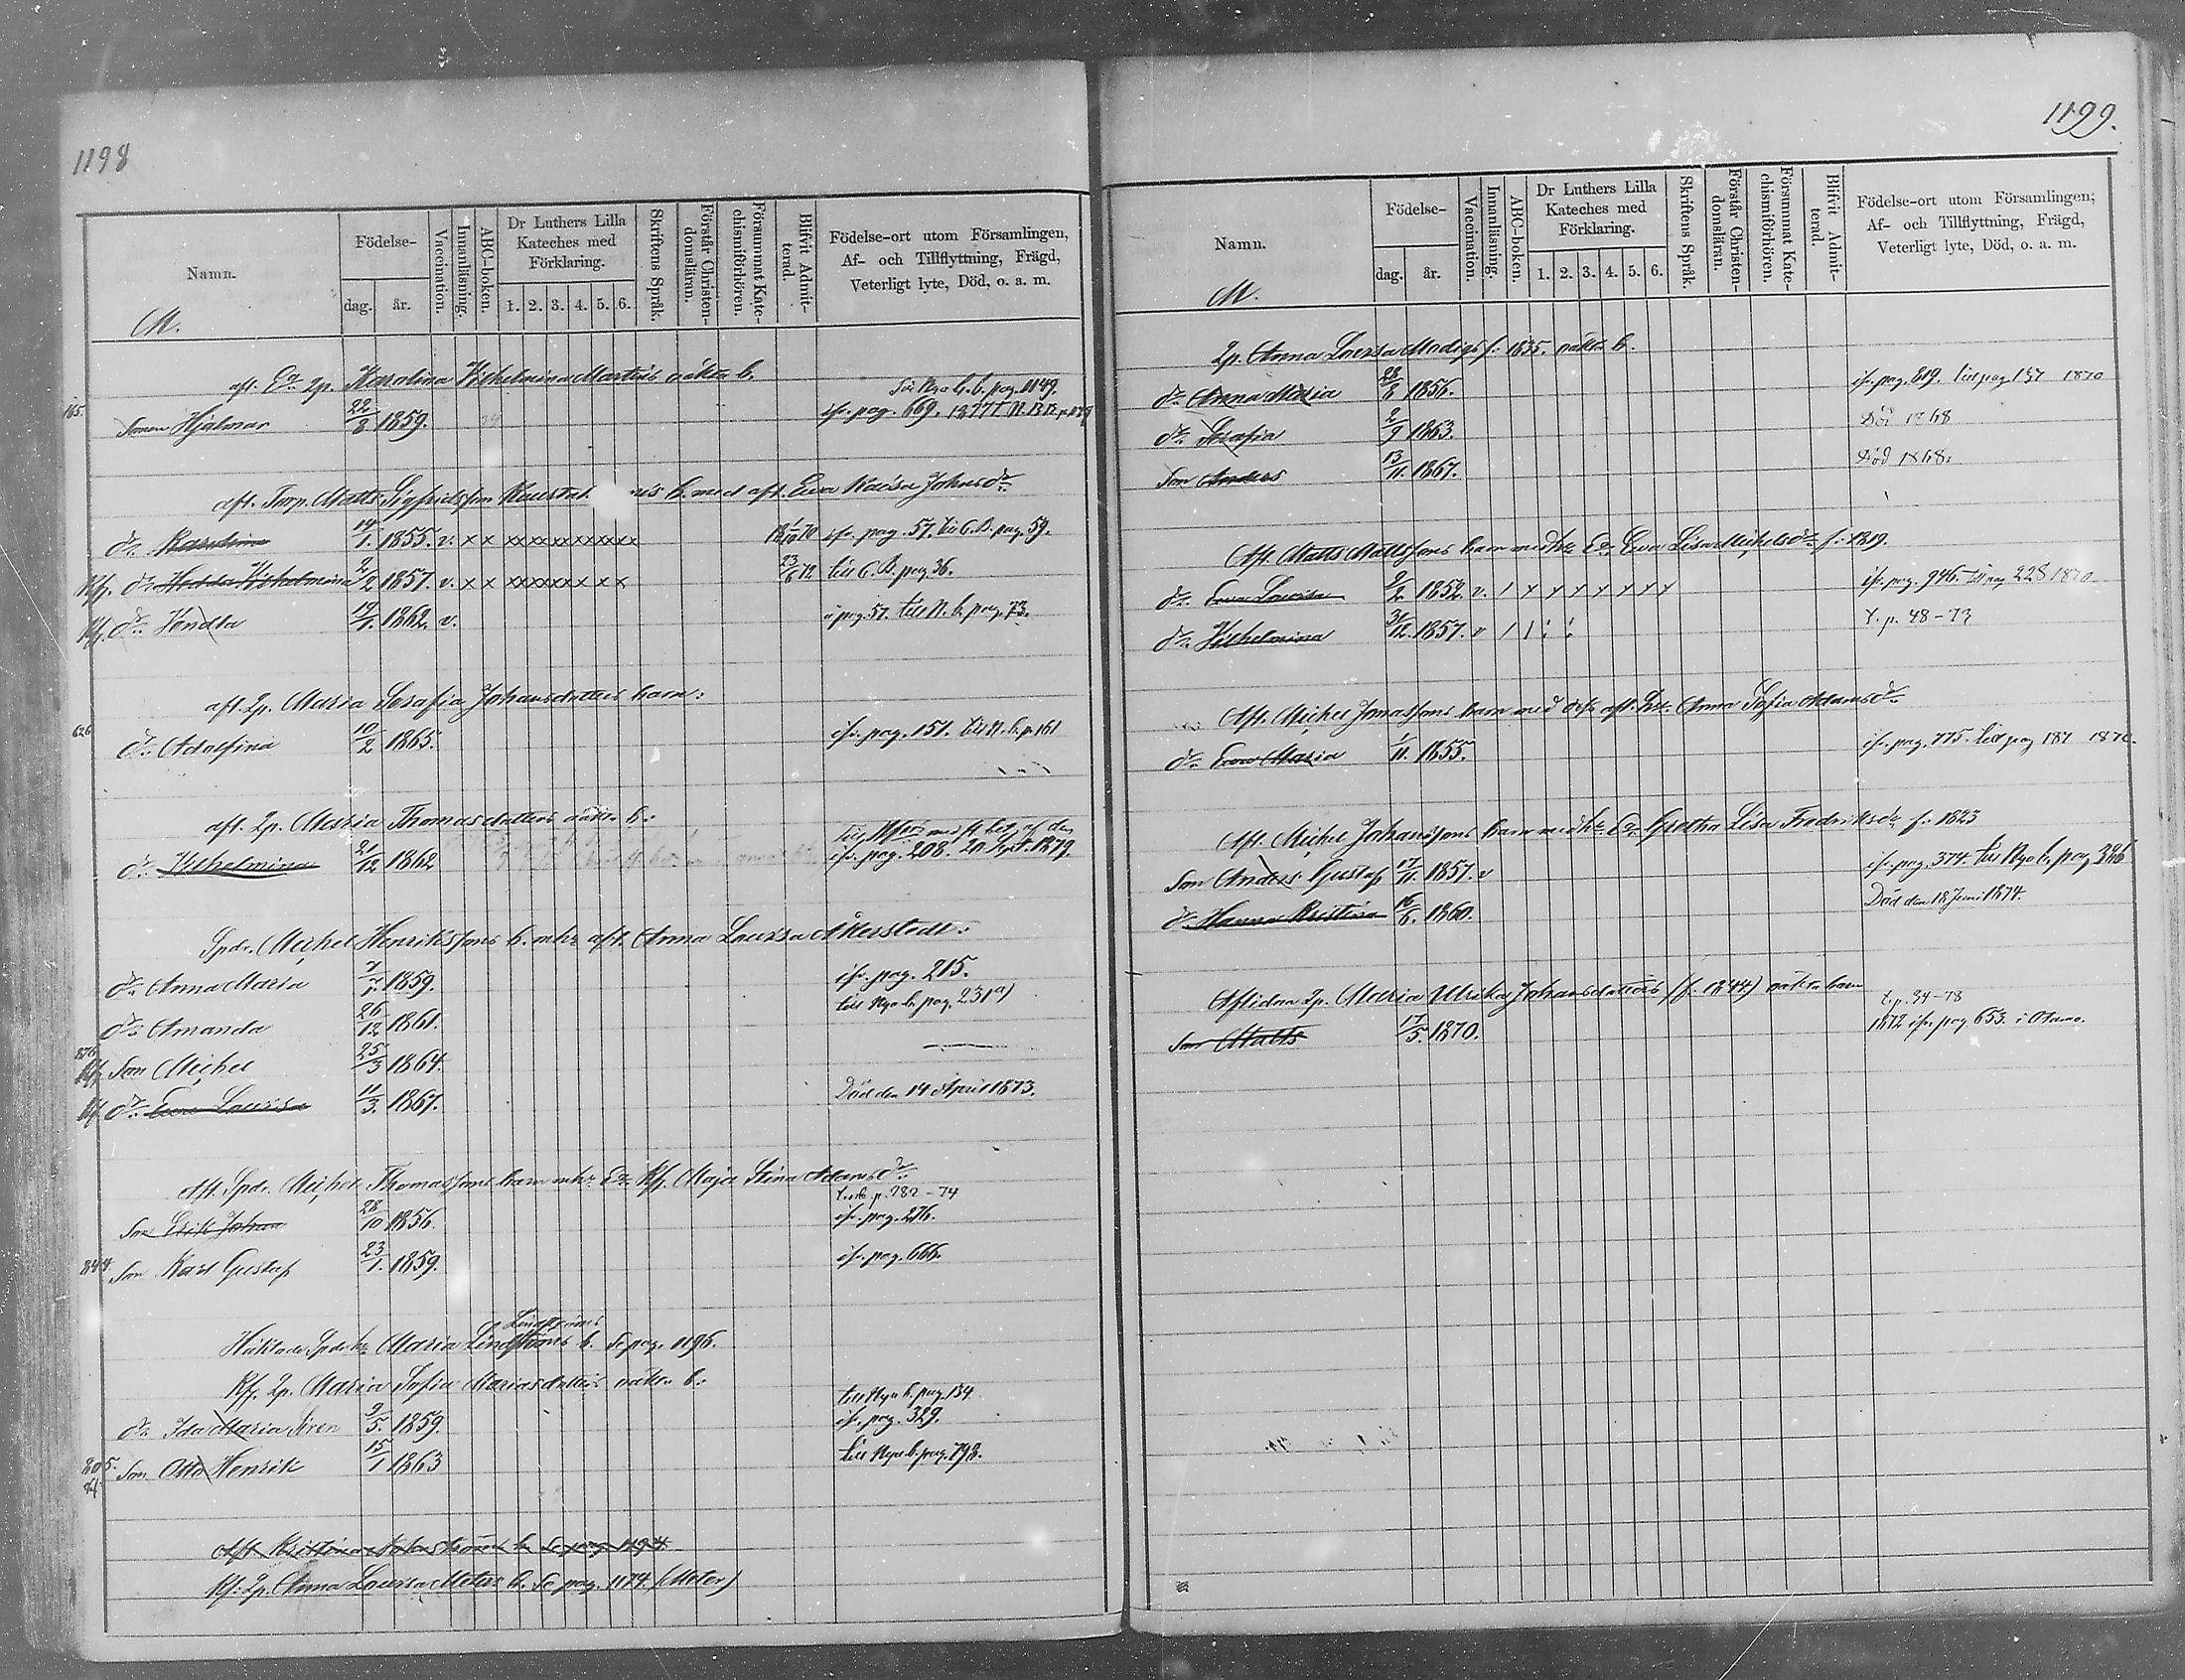 1198
Namn.
Födelse-
dag.
år.
Vaccination.
Innanläsning.
ABC-boken.
Dr Luthers Lilla
Kateches med
Förklaring.
1. 2. 3. 4. 5. 6.
Skriftens Språk.
Förstår Christen-
domsläran.
Försummat Kate-
chismiförhören.
Blifvit Admit-
terad.
Födelse-ort utom Församlingen,
Af- och Tillflyttning, Frägd,
Veterligt lyte, Död, o. a. m.
M.
afl. Ea 2p. Karolina Vilhelmina Martins oäkta b.
Till Nya b. b. pag. 1149.
165. Sonen Hjalmar 22/8 1859. ifr. pag. 669.
afl. Torp. Matts Sigfridsson b. med afl. Eva Kaisa Johansdr
dr. Karolina 14/1. 1855. v. x x xxxxxxxxxxx ifr. pag. 57. till C. B. pag. 59.
dr. Hedda Vilhelmina 2/2 1857. v. x x xxxxxxx x x 23/6 72 till C. B. pag. 36.
dr. Vendla 19/1. 1862. v. pag. 57. till N. b. pag. 73.
afl. 2p. Maria Serafia Johansdotters barn:
626 dr. Adolfina 10/2 1865. ifr. pag. 151. till N. b. p. 161
afl. 2p. Maria Thomasdotters oäkta b:
dr. Vilhelmina 21/12 1862 ifr. pag. 208. 20 Sept. 1879.
Spdr. Michel Henrikssons b. mhu afl. Anna Lovisa Åkerstedt:
dr. Anna Maria 7/1. 1859. ifr. pag. 215.
dr. Amanda 26/12 1861. till Nya b. pag. 231 a)
876 Son Michel 25/3 1864.
dr. Eva Lovisa 11/3. 1867. Död den 14 April 1873.
Afl. Spdr. Michel Thomassons barn mhu Ea Kf. Maja Stina Adamsdr:
p. 282-74
Son Erik Johan 28/10 1856. ifr. pag. 276.
844. Son Karl Gustaf 23/1. 1859. ifr. pag. 666.
Maria Lindströms b. Se pag. 1196.
Kf. 2p. Maria Sofia Mariasdotters oäkta b:
till Nya b. pag. 134
dr. Ida Maria Siren 9/5. 1859. ifr. pag. 329.
205. Son Otto Henrik 15/1 1863 till Nya b. pag. 798.
Kf: 2p. Anna Lovisa Meters b. Se pag. 1174. (Meter)
1199.
Namn.
Födelse-
dag.
år.
Vaccination.
Innanläsning.
ABC-boken.
Dr Luthers Lilla
Kateches med
Förklaring.
1. 2. 3. 4. 5. 6.
Skriftens Språk.
Förstår Christen-
domsläran.
Försummat Kate-
chismiförhören.
Blifvit Admit-
terad.
Födelse-ort utom Församlingen;
Af- och Tillflyttning, Frägd,
Veterligt lyte, Död, o. a. m.
M.
2p. Anna Lovisa Modigs f. 1835. oäkta b.
dr. Anna Maria 28/8 1856. ifr. pag. 819. till pag 137 1870
dr. Serafia 2/9 1863. Död 1868
Son Anders 13/11. 1867. Död 1868.
Afl. Matts Mattssons barn med hu Ea Eva Lisa Michelsdr f. 1819.
dr. Eva Lovisa 9/2. 1852. v. ifr. pag. 946. till pag 228 1870
dr. Vilhelmina 31/12. 1857. v p. 48-73
Afl. Michel Jonassons barn med Anna Sofia Adamsdr
dr. Eva Maria 1/11. 1855. ifr. pag. 775. till pag 187 1870.
Afl. Michel Johanssons barn med hu Ea Gretha Lisa Fredriksdr f: 1823
Son Anders Gustaf 17/11. 1857. v ifr. pag. 374. till Nya b. pag 386
dr. Hanna Kristina 16/6. 1860. Död den 18 Juni 1874.
Aflidna 2p. Maria Ulrika Johansdotters (f. 1844) oäkta barn
p. 34-78
Son Matts 17/5. 1870. 1872 ifr. pag 653.